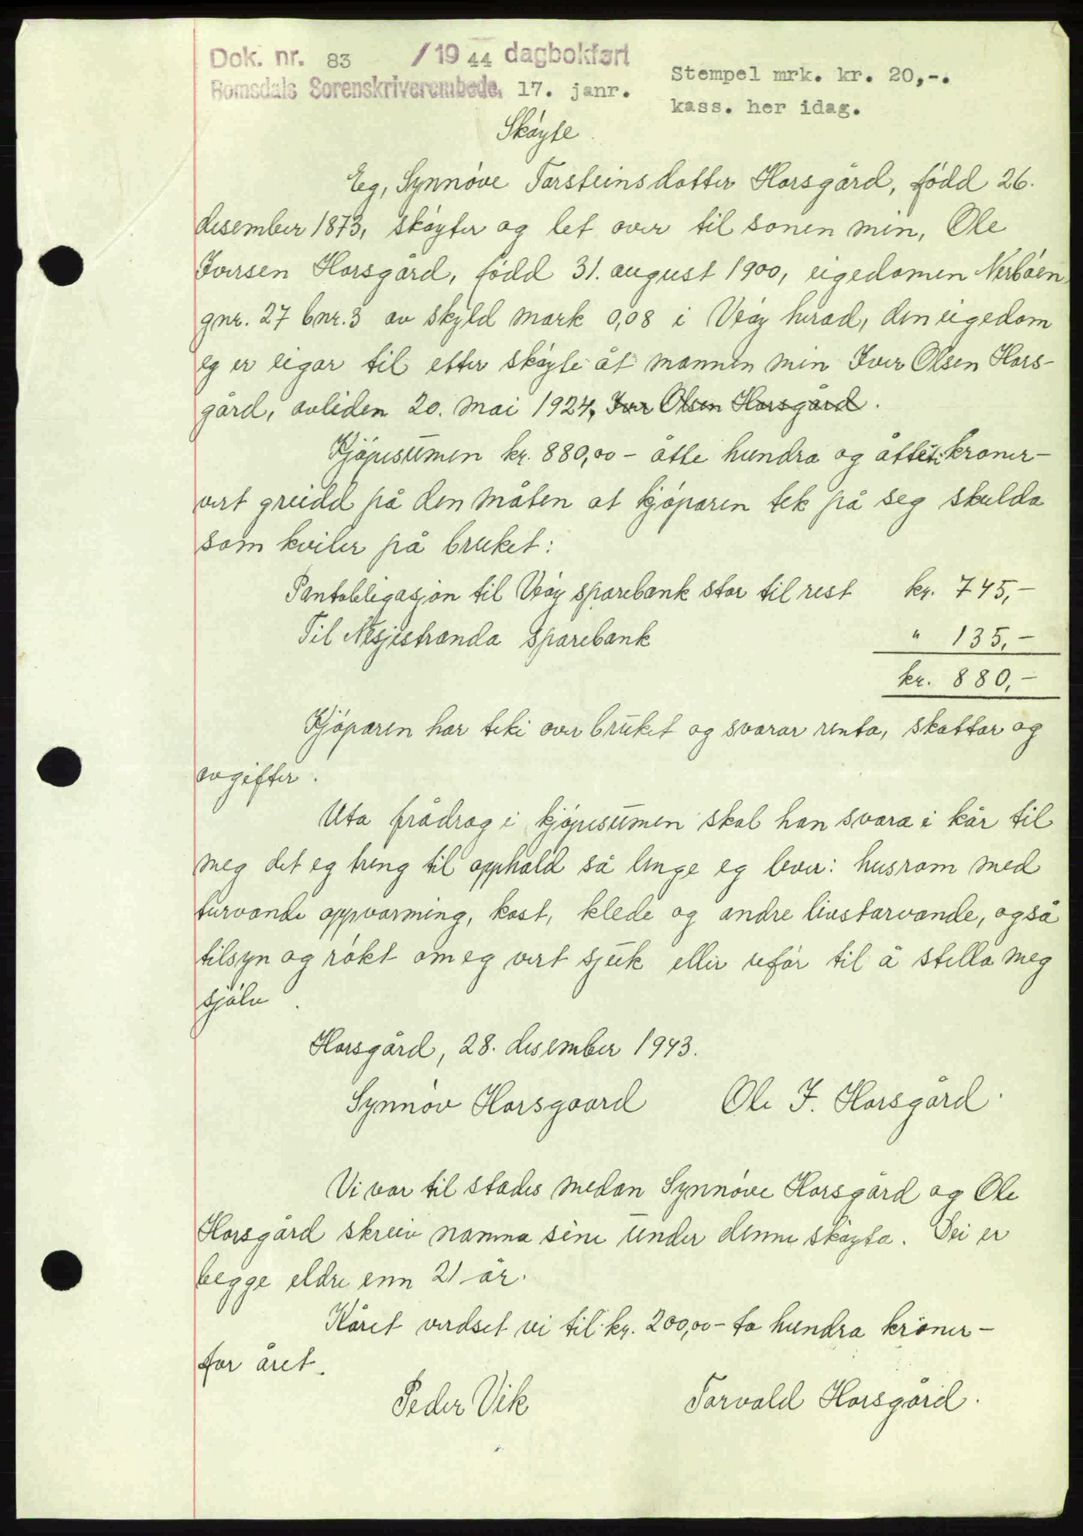 Dok. nr. 83 /19 44 dagbokført
Romsdals Sorenskriverembede, 17. janr.
Stempel mrk. kr. 20,-.
kass. her idag.
Skøyte.
Eg, Synnøve Torsteinsdotter Horsgård, fødd 26.
desember 1873, skøyter og let over til sonen min, Ole
Iversen Horsgård, fødd 31. august 1900, eigedomen Nerbøen,
gnr. 27 bnr. 3 av skyld mark 0,08 i Veøy herad, den eigedom
eg er eigar til etter skøyte åt mannen min Iver Olsen Hors-
gård, avliden 20. mai 1924, Iver Olsen Horsgård.
Kjøpesumen kr. 880,00 - åtte hundra og åtteti kroner -
vert greidd på den måten at kjøparen tek på seg skulda
som kviler på bruket:
Pantobligasjon til Veøy sparebank stor til rest kr. 745,-
Til Nesjestranda sparebank " 135,-
kr. 880,-
Kjøparen har teke over bruket og svarar renta, skattar og
avgifter.
Uta frådrag i kjøpesumen skal han svara i kår til
meg det eg treng til opphald så lenge eg lever: husrom med
turvande oppvarming, kost, klede og andre livstarvande, også
tilsyn og røkt om eg vert sjuk eller ufør til å stella meg
sjølv.
Horsgård, 28. desember 1943.
Synnøv Horsgaard Ole I. Horsgård.
Vi var til stades medan Synnøve Horsgård og Ole
Horsgård skreiv namna sine under denne skøyta. Dei er
begge eldre enn 21 år.
Kåret verdset vi til kr. 200,00 - to hundra kroner -
for året.
Peder Vik Torvald Horsgård.